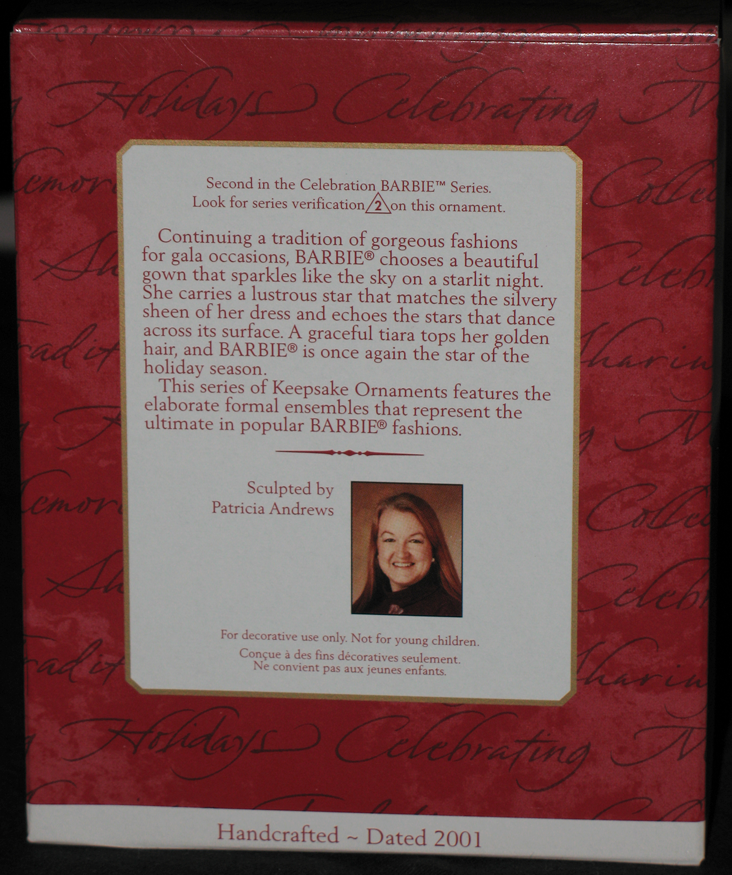 Holidays Celebrating
Second in the Celebration BARBIE™ Series.
Look for series verification 2 on this ornament.
Continuing a tradition of gorgeous fashions
for gala occasions, BARBIE® chooses a beautiful
gown that sparkles like the sky on a starlit night.
She carries a lustrous star that matches the silvery
sheen of her dress and echoes the stars that dance
across its surface. A graceful tiara tops her golden
hair, and BARBIE® is once again the star of the
holiday season.
This series of Keepsake Ornaments features the
elaborate formal ensembles that represent the
ultimate in popular BARBIE® fashions.
Sculpted by
Patricia Andrews
For decorative use only. Not for young children.
Conçue à des fins décoratives seulement.
Ne convient pas aux jeunes enfants.
Holidays Celebrating
Handcrafted ~ Dated 2001